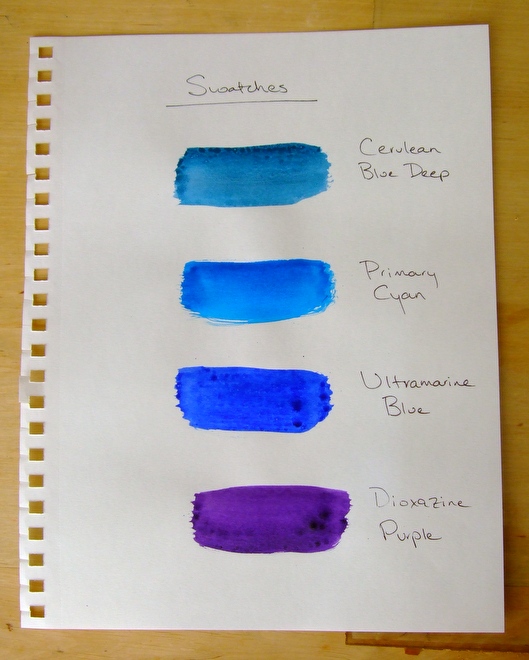 Swatches
Cerulean
Blue Deep
Primary
Cyan
Ultramarine
Blue
Dioxazine
Purple